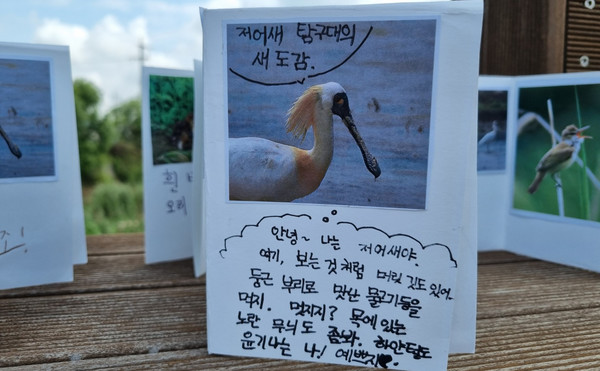 저어새 탐구대의
새 도감.
안녕~ 나는 저어새야.
여기, 보는 것처럼 머릿 깃도 있어.
둥근 부리로 맛난 물고기들을
먹지. 멋지지? 목에 있는
노란 무늬도 좀봐. 하얀 털도
윤기나는 나! 예쁘지♥.
흰
오리
조!